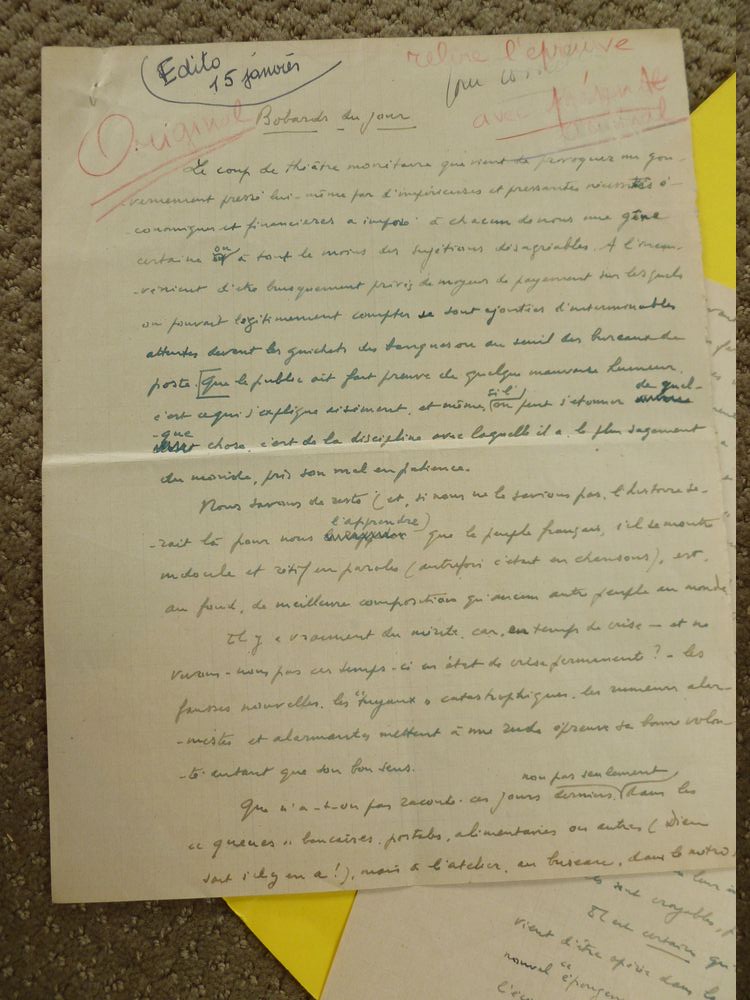 Edito
15 janvier
relire l'épreuve
avec
Original
Bobards du jour
Le coup de théâtre monétaire que vient de provoquer un gou-
-vernement pressé lui-même par d'impérieuses et pressantes nécessités é-
-conomiques et financières a imposé à chacun de nous une gêne
certaine ou à tout le moins des sujétions désagréables. A l'incon-
-vénient d'être brusquement privés de moyens de payement sur lesquels
on pouvait légitimement compter se sont ajoutées d'interminables
attentes devant les guichets des banques ou au seuil des bureaux de
poste. Que le public ait fait preuve de quelque mauvaise humeur,
c'est ce qui s'explique aisément, et même, si l'on peut s'étonner de quel-
-que chose, c'est de la discipline avec laquelle il a, le plus sagement
du monde, pris son mal en patience.
Nous savons de reste (et, si nous ne le savions pas, l'histoire se-
-rait là pour nous l'apprendre) que le peuple français, s'il se montre
indocile et rétif en paroles (autrefois c'était en chansons), est,
au fond, de meilleure composition qu'aucun autre peuple au monde.
Il y a vraiment du mérite, car, en temps de crise — et ne
vivons-nous pas ces temps-ci en état de crise permanente ? — les
fausses nouvelles, les "tuyaux" catastrophiques, les rumeurs alar-
-mistes et alarmantes mettent à une rude épreuve sa bonne volon-
-té autant que son bon sens.
Que n'a-t-on pas raconté ces jours derniers, non pas seulement dans les
" queues " bancaires, postales, alimentaires ou autres (Dieu
sait s'il y en a !), mais à l'atelier, au bureau, dans le métro,
croyables,
Il est certain que
vient d'être opérée dans
ce
nouvel